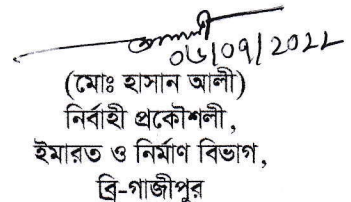 ০৬/০৭/2022
(মোঃ হাসান আলী)
নির্বাহী প্রকৌশলী,
ইমারত ও নির্মাণ বিভাগ,
ব্রি-গাজীপুর